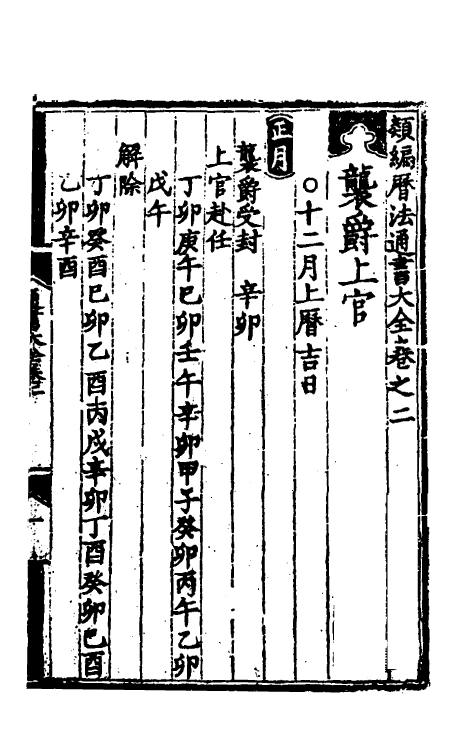 類編曆法通書大全卷之二
襲爵上官
○十二月上曆吉日
正月
襲爵受封　辛卯
上官赴任
丁卯庚午己卯壬午辛卯甲子癸卯丙午乙卯
戊午
解除
丁卯癸酉己卯乙酉丙戌辛卯丁酉癸卯己酉
乙卯辛酉
一